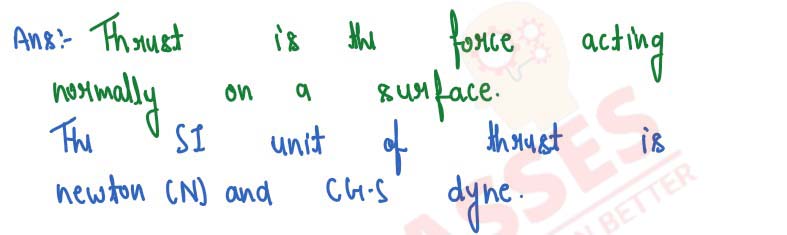 Ans:- Thrust is the force acting
normally on a surface.
The SI unit of thrust is
newton (N) and CG.S dyne.
ASSES
N BETTER